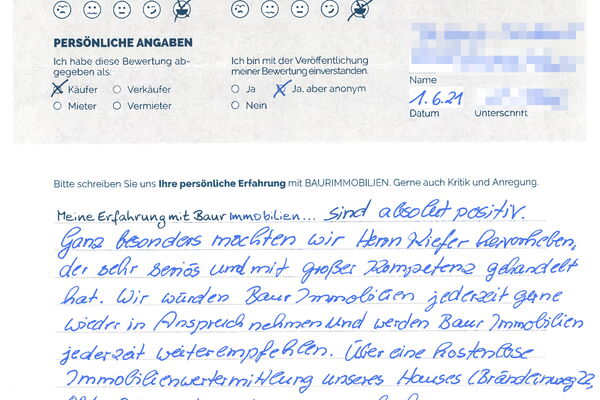 PERSÖNLICHE ANGABEN
Ich habe diese Bewertung ab-
gegeben als:
Käufer Verkäufer
Mieter Vermieter
Ich bin mit der Veröffentlichung
meiner Bewertung einverstanden.
Ja Ja, aber anonym
Nein
Name
1.6.21
Datum Unterschrift
Bitte schreiben Sie uns Ihre persönliche Erfahrung mit BAURIMMOBILIEN. Gerne auch Kritik und Anregung.
Meine Erfahrung mit Baur Immobilien... sind absolut positiv.
Ganz besonders möchten wir Herrn Kiefer hervorheben,
der sehr seriös und mit großer Kompetenz gehandelt
hat. Wir würden Baur Immobilien jederzeit gerne
wieder in Anspruch nehmen und werden Baur Immobilien
jederzeit weiterempfehlen. Über eine kostenlose
Immobilienwertermittlung unseres Hauses